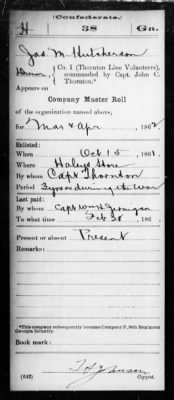 (Confederate.)
H 38 Ga.
Jas. M. Hutcherson
Co. I (Thornton Line Volunteers),
commanded by Capt. John C.
Thornton.*
Appears on
Company Muster Roll
of the organization named above,
for Mar & Apr, 1862
Enlisted:
When Oct 15, 1861.
Where Haleys Store
By whom Capt Thornton
Period 3 yrs or during the war
Last paid:
By whom Capt
To what time Feb 28, 186
Present or absent Present
Remarks:
*This company subsequently became Company F, 38th Regiment
Georgia Infantry.
Book mark:
(642)
Copyist.